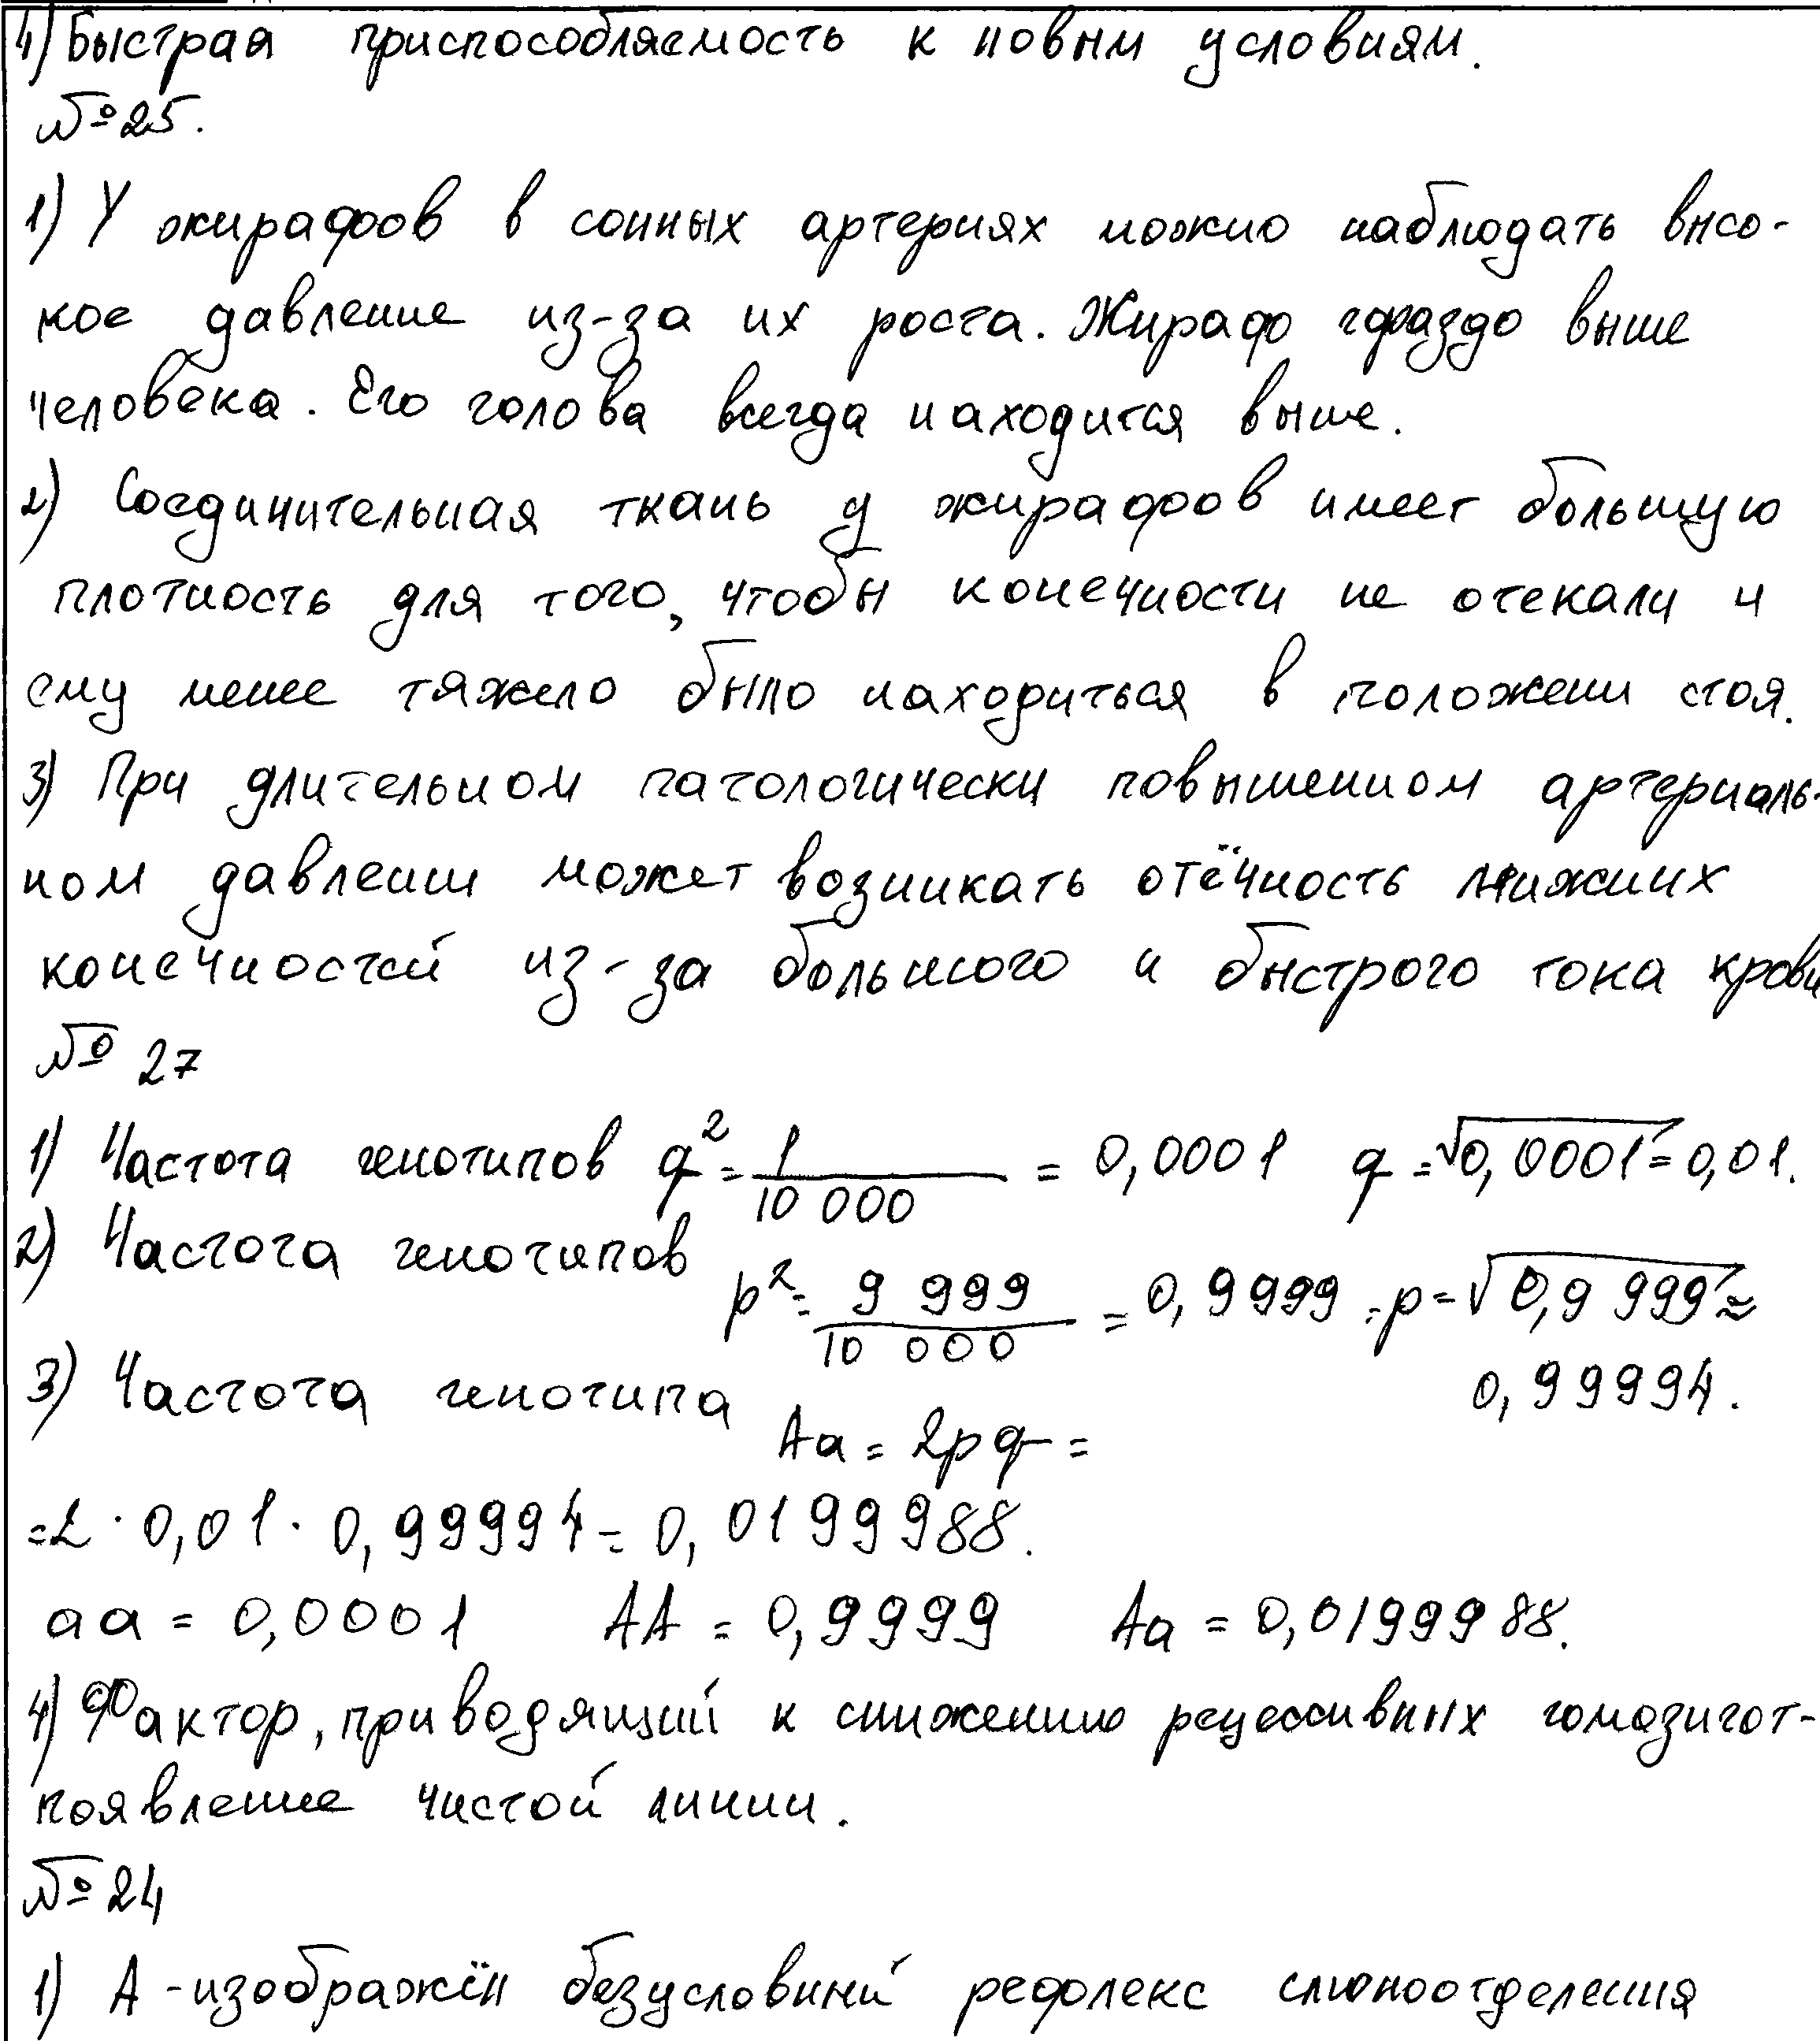 4) Быстрая приспособляемость к новым условиям.
№ 25.
1) У жирафов в сонных артериях можно наблюдать высо-
кое давление из-за их роста. Жираф гораздо выше
человека. Его голова всегда находится выше.
2) Соединительная ткань у жирафов имеет большую
плотность для того, чтобы конечности не отекали и
ему менее тяжело было находиться в положени стоя.
3) При длительном патологически повышенном артериаль-
ном давлении может возникать отёчность нижних
конечностей из-за большого и быстрого тока крови
№ 27
1) Частота генотипов q² = 1/10 000 = 0,0001 q = √0,0001 = 0,01.
2) Частота генотипов p² = 9 999/10 000 = 0,9999 . p = √0,9 999 ≈
0,99994.
3) Частота генотипа Aa = 2pq =
= 2 · 0,01 · 0,99994 = 0,0199988.
aa = 0,0001 AA = 0,9999 Aa = 0,0199988.
4) Фактор, приводящий к снижению рецессивных гомозигот-
появление чистой линии.
№ 24
1) А - изображён безусловный рефлекс слюноотделения